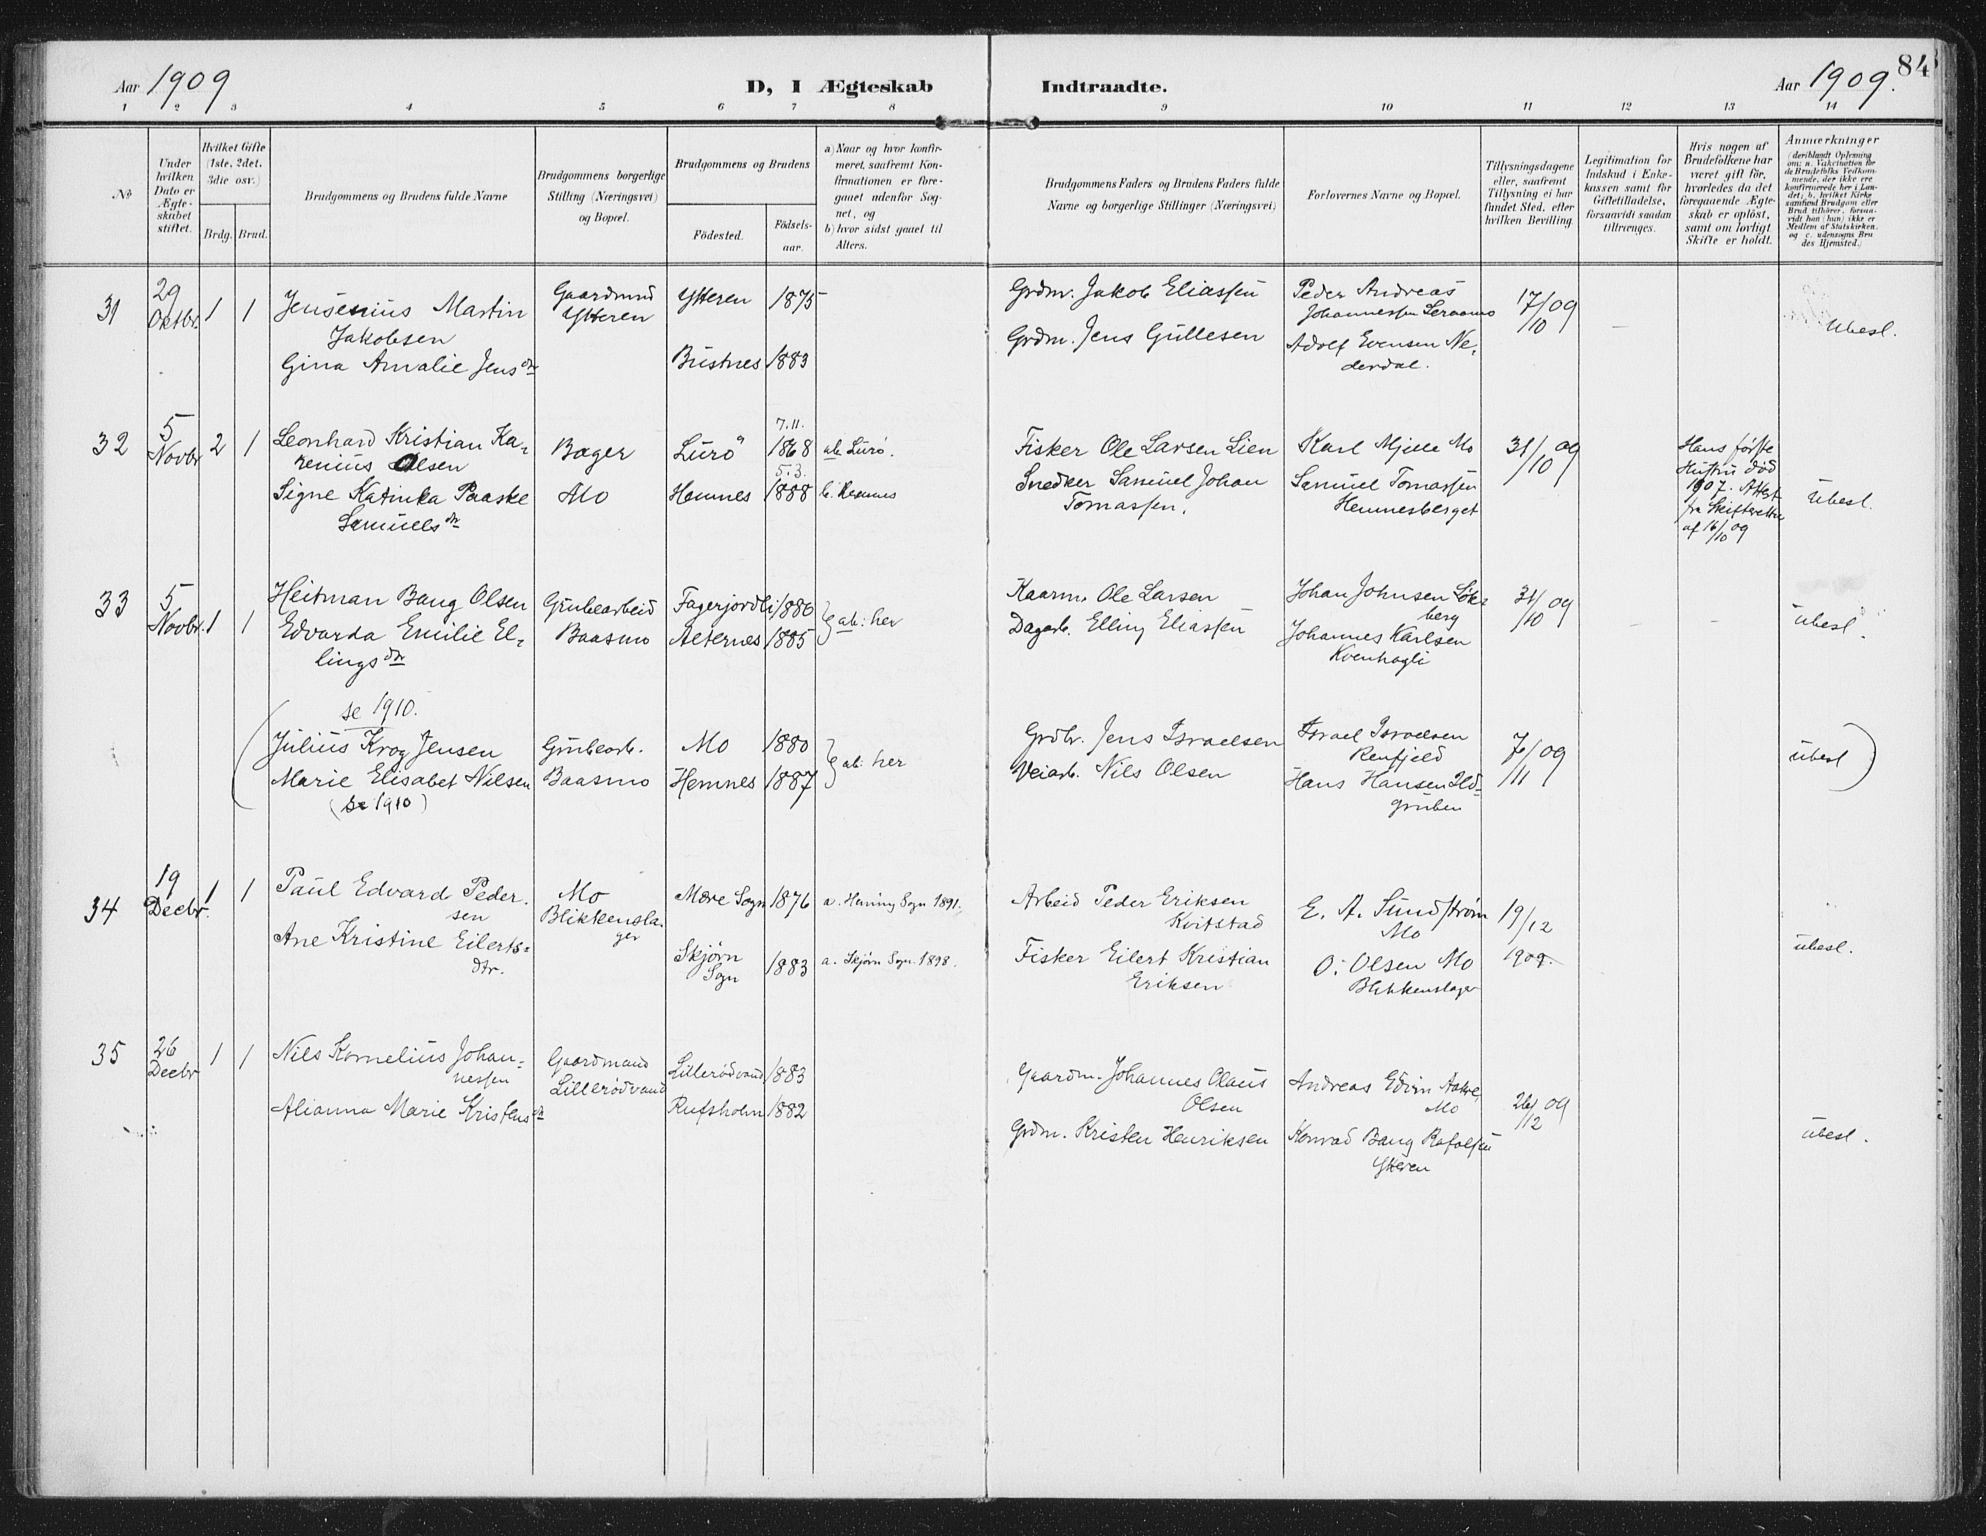 84
Aar 1909
D, I Ægteskab Indtraadte.
Aar 1909.
1 2 3 4 5 6 7 8 9 10 11 12 13 14
No
Under hvilken Dato er Ægteskabet stiftet.
Hvilket Gifte (1ste, 2det, 3die osv.)
Brdg. Brud.
Brudgommens og Brudens fulde Navne
Brudgommens borgerlige Stilling (Næringsvei) og Bopæl.
Brudgommens og Brudens
Födested.
Födselsaar.
a) Naar og hvor konfirmeret, saafremt Konfirmationen er foregaaet udenfor Sognet, og
b) hvor sidst gaaet til Alters.
Brudgommens Faders og Brudens Faders fulde Navne og borgerlige Stillinger (Næringsvei)
Forlovernes Navne og Bopæl.
Tillysningsdagene eller, saafremt Tillysning ei har fundet Sted, efter hvilken Bevilling.
Legitimation for Indskud i Enkekassen samt for Giftetilladelse, forsaavidt saadan tiltrænges.
Hvis nogen af Brudefolkene har været gift før, hvorledes da det foregaaende Ægteskab er oplöst, samt om lovligt Skifte er holdt.
Anmærkninger
31 29 Oktbr. 1 1
Jensenius Martin
Jakobsen
Gina Amalie Jensdtr
Gaardmd
Ytteren
Ytteren 1875
Bustnes 1883
Grdm. Jakob Eliassen
Grdm. Jens Gullesen
Peder Andreas
Johannessen
Adolf Evensen Ne-
derdal.
17/10 09
Ubesl.
32 5 Novbr 2 1
Leonhard Kristian Ka-
renius Olsen
Signe Katinka Paaske
Samuelsdtr
Bager
Mo
Lurö 7.11. 1868
Hemnes 5.3. 1888
ab Lurö.
b. Hemnes
Fisker Ole Larsen Lien
Snedker Samuel Johan
Tomassen.
Karl Mjelle Mo
Samuel Tomassen
Hemnesberget
31/10 09
Hans første
Hustru död
1907. Attest
fra Skifteretten
af 16/10 09
Ubesl.
33 5 Novbr. 1 1
Heitman Bang Olsen
Edvarda Emilie El-
lingsdtr
Grubearbeid
Baasmo
Fagerjordli 1886
Alternes 1885
ab: her
Kaarm. Ole Larsen
Dagarb. Elling Eliassen
Johan Johnsen
berg
Johannes Karlsen
Kvenhagli
31/10 09
Ubesl.
se 1910.
(Julius Krog Jensen
Marie Elisabet Nilsen
(se 1910)
Grubearb.
Baasmo
Mo 1880
Hemnes 1887
ab: her
Grdbr. Jens Israelsen
Veiarb. Nils Olsen
Israel Israelsen
Renfjeld
Hans Hansen Ild-
gruben
7/11 09
ubesl)
34 19 Decbr. 1 1
Paul Edvard Peder-
sen
Ane Kristine Eilerts-
dtr.
Mo
Blikkensla-
ger
Mære Sogn 1876
Skjørn
Sogn 1883
a. Hening Sogn 1891.
a. Skjørn Sogn 1898.
Arbeid Peder Eriksen
Kvitstad
Fisker Eilert Kristian
Eriksen
E. A. Sundstrøm
Mo
O. Olsen Mo
Blikkenslager
19/12
1909.
ubesl.
35 26 Decbr 1 1
Nils Kornelius Johan-
nessen
Alianna Marie Kristensdtr
Gaardmand
Lillerödvand
Lillerödvand 1883
Rufsholm 1882
Gaardm. Johannes Olaus
Olsen
Grdm. Kristen Henriksen
Andreas Edvin
Mo
Konrad Bang Rafalsen
Ytteren
26/12 09
ubesl.